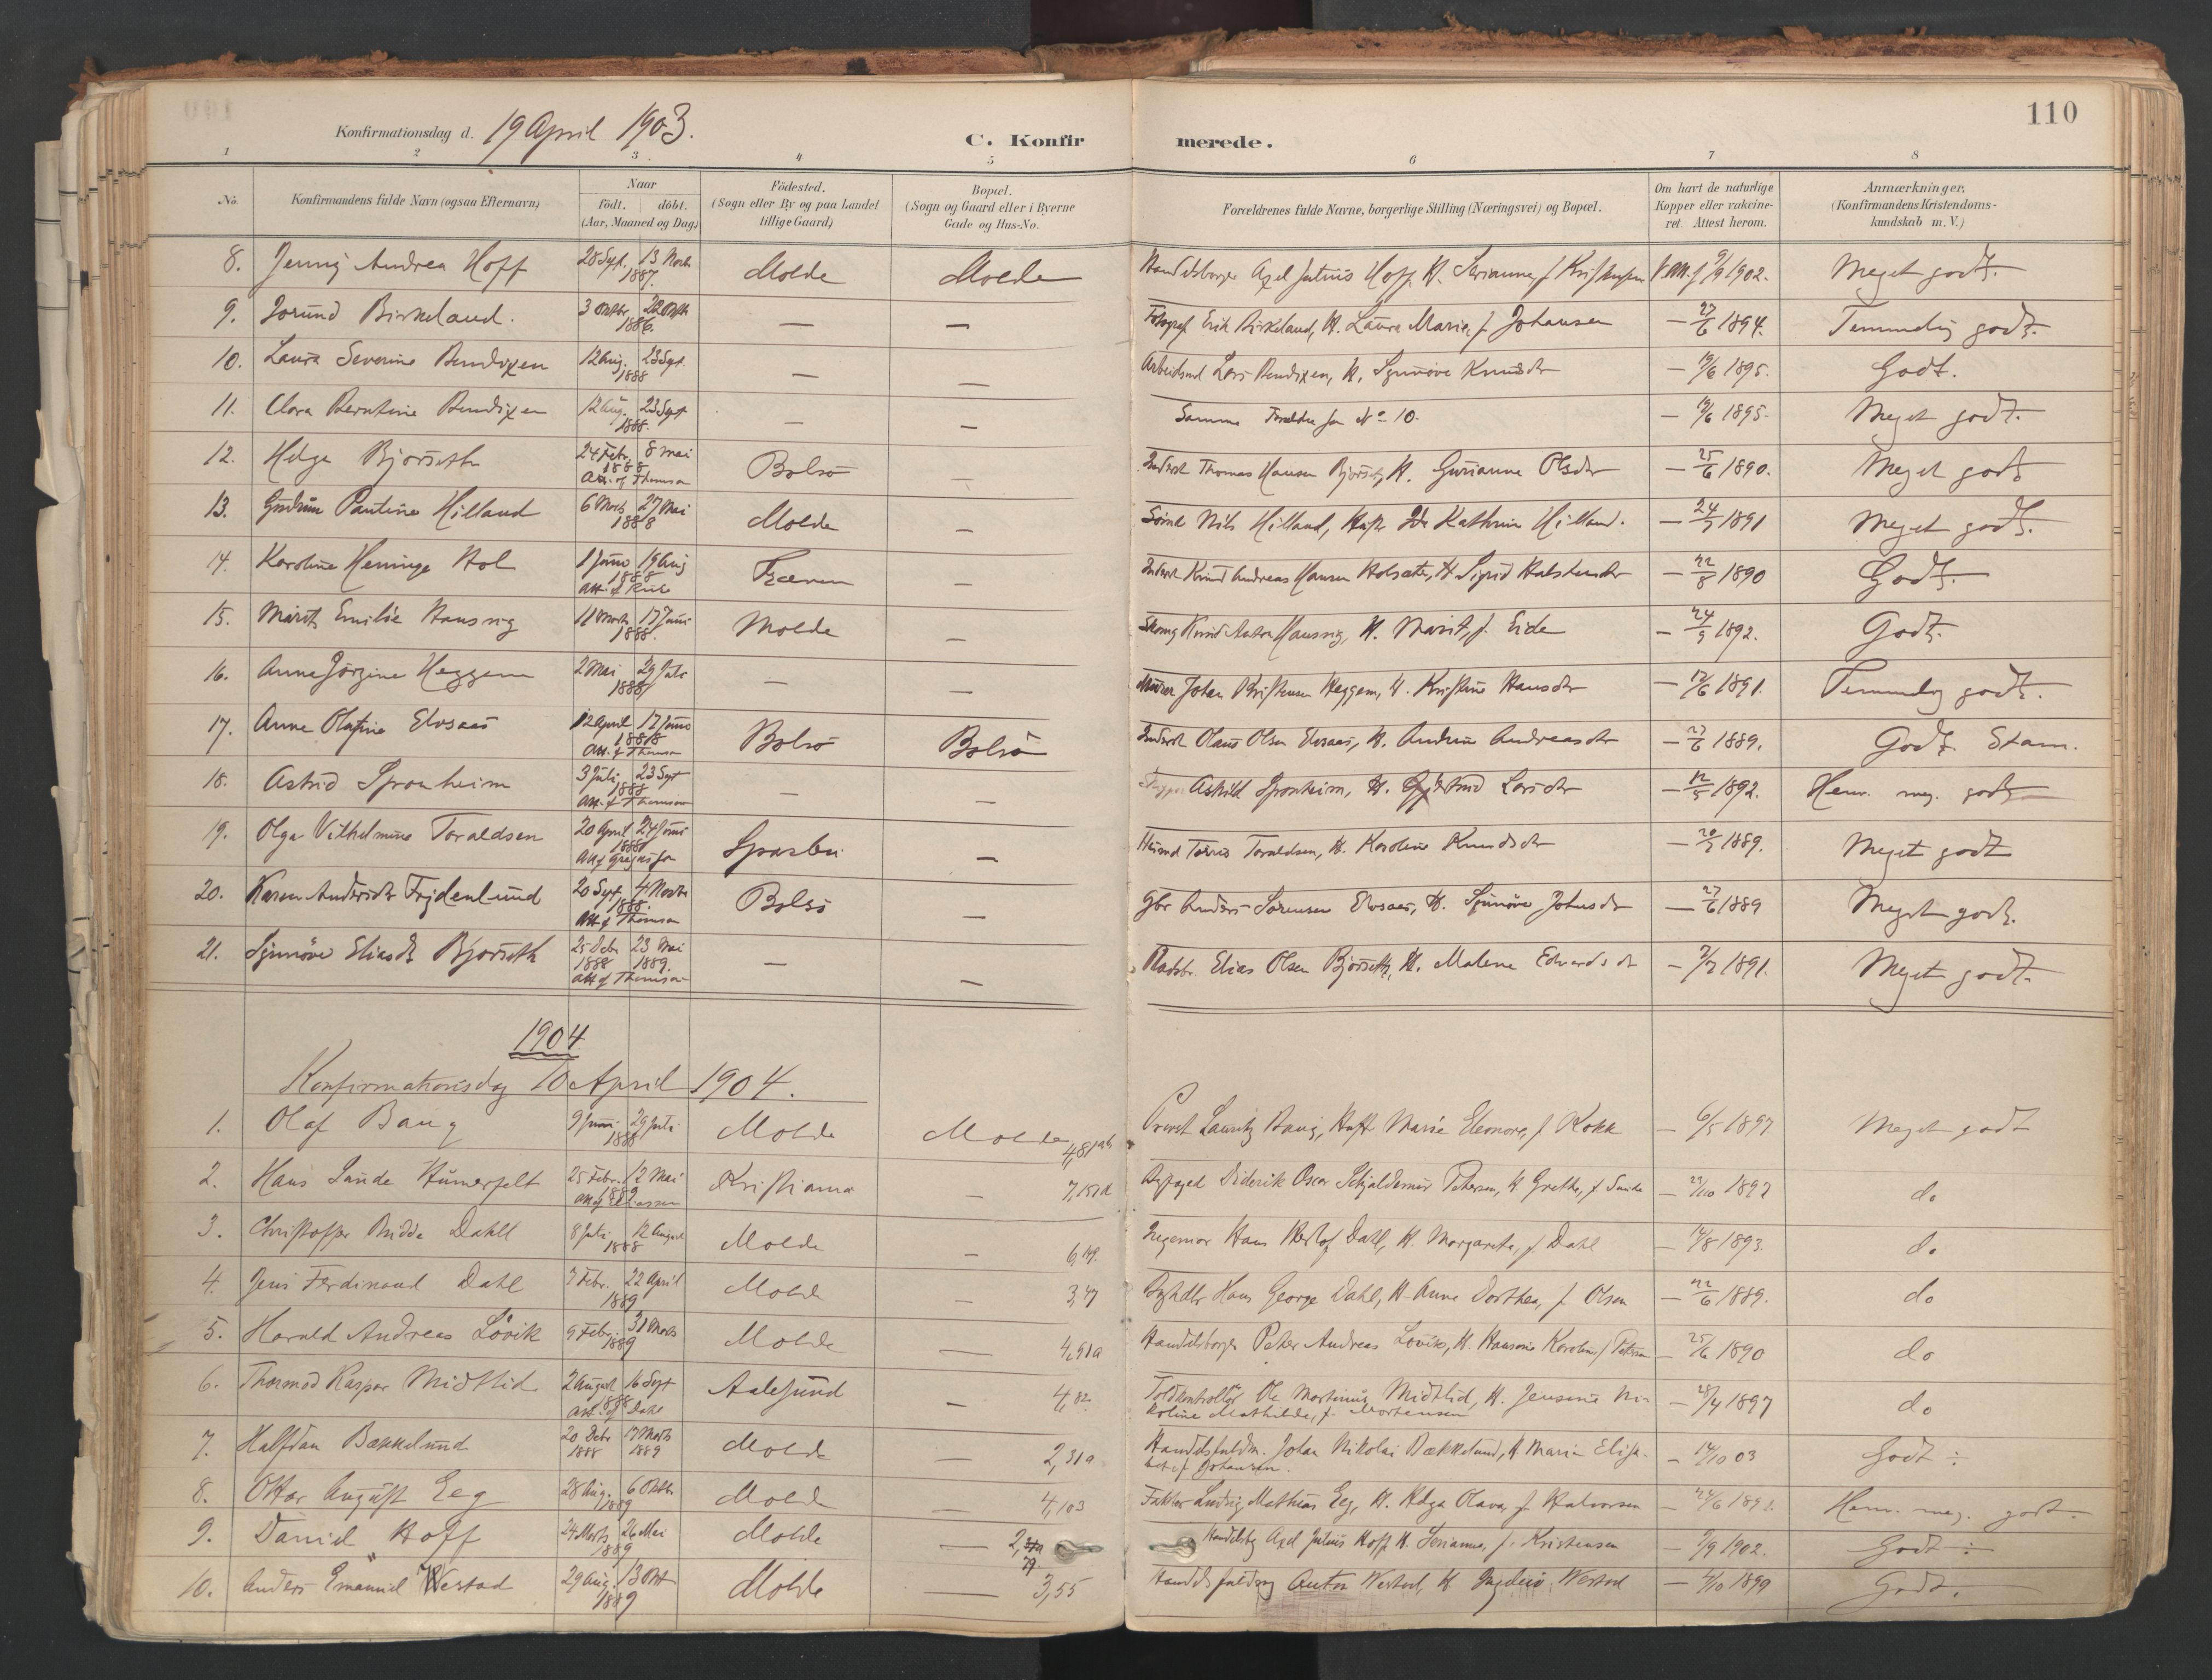 110
Konfirmationsdag d. 19 April 1903.
C. Konfirmerede.
1 2 3 4 5 6 7 8
No. Konfirmandens fulde Navn (ogsaa Efternavn) Naar födt. döbt. (Aar, Maaned og Dag) Födested. (Sogn eller By og paa Landet tillige Gaard) Bopæl. (Sogn og Gaard eller i Byerne Gade og Hus-No. Forældrenes fulde Navne, borgerlige Stilling (Næringsvei) og Bopæl. Om havt de naturlige Kopper eller vakcineret. Attest herom. Anmærkninger. (Konfirmandens Kristendomskundskab m. V.)
8. Jenny Andrea Hoff 28 Sept. 13 Novb 1887. Molde Molde Handelsborger Axel Julius Hoff, H. Serianna, f. Kristensen 9/9 1902. Meget godt.
9. Jorund Birkeland. 3 Oktbr. 1886. — — Fotograf Erik Birkeland, H. Laura Marie, f. Johansen — 27/6 1894. Temmelig godt.
10. Laura Severine Bendixen 12 Aug. 23 Sept. 1888 — — Arbeidsmd Lars Bendixen, H. Synnöve Knudsdtr — 19/6 1895. Godt.
11. Clara Berntine Bendixen 12 Aug. 23 Sept 1888. — — Samme Forældre som No 10. — 19/6 1895. Meget godt.
12. Helga Bjørseth 24 Febr. 8 Mai 1888 Att. af Thomson Bolsö — Inderst Thomas Hansen Bjørseth, H. Gurianna Olsdtr — 25/6 1890. Meget godt
13. Gudrun Pauline Hilland 6 Marts 27 Mai 1888 Molde — Sömd Nils Hilland, Kathrine Hilland. — 24/9 1891 Meget godt.
14. Karoline Heninge Hol 1 Juni 19 Aug 1888 Att. af Fræna — Inderst Knud Andreas Hansen Holsæter, H. Sigrid Halstensdtr — 22/8 1890 Godt.
15. Marit Emilie Hansvig 11 Marts 17 Juni 1888. Molde — Knud Anton Hansvig, H. Marit, f. Eide — 24/9 1892. Godt.
16. Anna Jörgine Heggem 2 Mai 29 Juli 1888 — — Murer Johan Kristensen Heggem, H. Kristine Hansdtr — 12/6 1891. Temmelig godt.
17. Anne Olufine Elvsaas 12 April 17 Juni 1888 Att. af Thomson Bolsö Bolsö Inderst Olaus Olsen Elvsaas, H. Andrine Andreasdtr — 27/6 1889. Godt. Stam.
18. Astrid Sponheim 3 Juli 23 Sept 1888 Att. af Thomson — — Askild Sponheim, H. Gjertrud Larsdtr — 12/5 1892. Henv. meg. godt
19. Olga Vilhelmine Toraldsen 20 April 24 Juni 1888 Sparbu — Torris Toraldsen, H. Karoline Knudsdtr — 1889. Meget godt
20. Karen Andersdtr Frydenlund 20 Sept. 4 Novbr 1888. Att. af Thomson Bolsö — Gbr Anders Sörensen Elvsaas, H. Synnöve Johnsdtr — 27/6 1889 Meget godt.
21. Synnöve Eliasdtr Bjørseth 25 Debr 1888 23 Mai 1889. Att. af Thomson — — Pladsbr. Elias Olsen Bjørseth, H. Malene Edvardsdtr — 1891. Meget godt.
1904
Konfirmationsdag 10 April 1904.
1. Olaf Baug 9 Juni. 29 Juli 1888 Molde Molde 4,81ab Provst Lauritz Baug, Hust Marie Eleonora, f. Kokk — 6/5 1897 Meget godt
2. Hans Sunde Humerfelt 25 Febr. 12 Mai 1889 Kristiania — 7,151d Diderik Oscar Schjaldemose Petersen, H. Grethe, f. Sunde — 29/10 1897 do
3. Christoffer Budde Dahl 8 Juli 12 August 1888 Molde — 6,49. Ingeniør Hans Dahl, H. Margareta, f. Dahl — 14/8 1893. do
4. Jens Ferdinand Dahl 3 Febr. 22 April 1889 Molde — 3,47 Hans George Dahl, H. Anne Dorthea, f. Olsen — 22/6 1889. do
5. Harald Andreas Lövik 9 Febr. 31 Marts 1889 Molde — 4,91a Handelsborger Peter Andreas Lövik, H. Hansine Karoline, f. Petersen — 25/6 1890 do
6. Thormod Kaspar Midtlid 2 August 16 Sept 1888 Att. af Dahl Aalesund — 4,82. Toldkontrollör Ole Martinus Midtlid, H. Jensine Ni-
koline Mathilde, f. Mortensen — 28/4 1897 do
7. Halfdan Bækkelund 20 Debr 1888 17 Marts 1889 Molde — 2,31a Handelsfuldm. Johan Nikolai Bækkelund, H. Marie Elisa-
bet f. Johansen. — 14/10 03 Godt ÷
8. Ottar August Eeg 28 Aug. 6 Oktbr 1889 Molde — 4,103 Faktor Ludvig Mathias Eeg, H. Helga Olava, f. Halvorsen — 24/6 189 Henv. meg. godt.
9. Daniel Hoff 24 Marts 26 Mai 1889 Molde — 2, 79. Handelsbg Axel Julius Hoff H. Serianna, f. Kristensen — 9/9 1902. Godt ÷
10. Anders Emanuel Westad 29 Aug. 13 Okt 1889 Molde — 3,55 Handelsfuldmg Anton Westad, H. Westad — 4/10 1899 Godt.